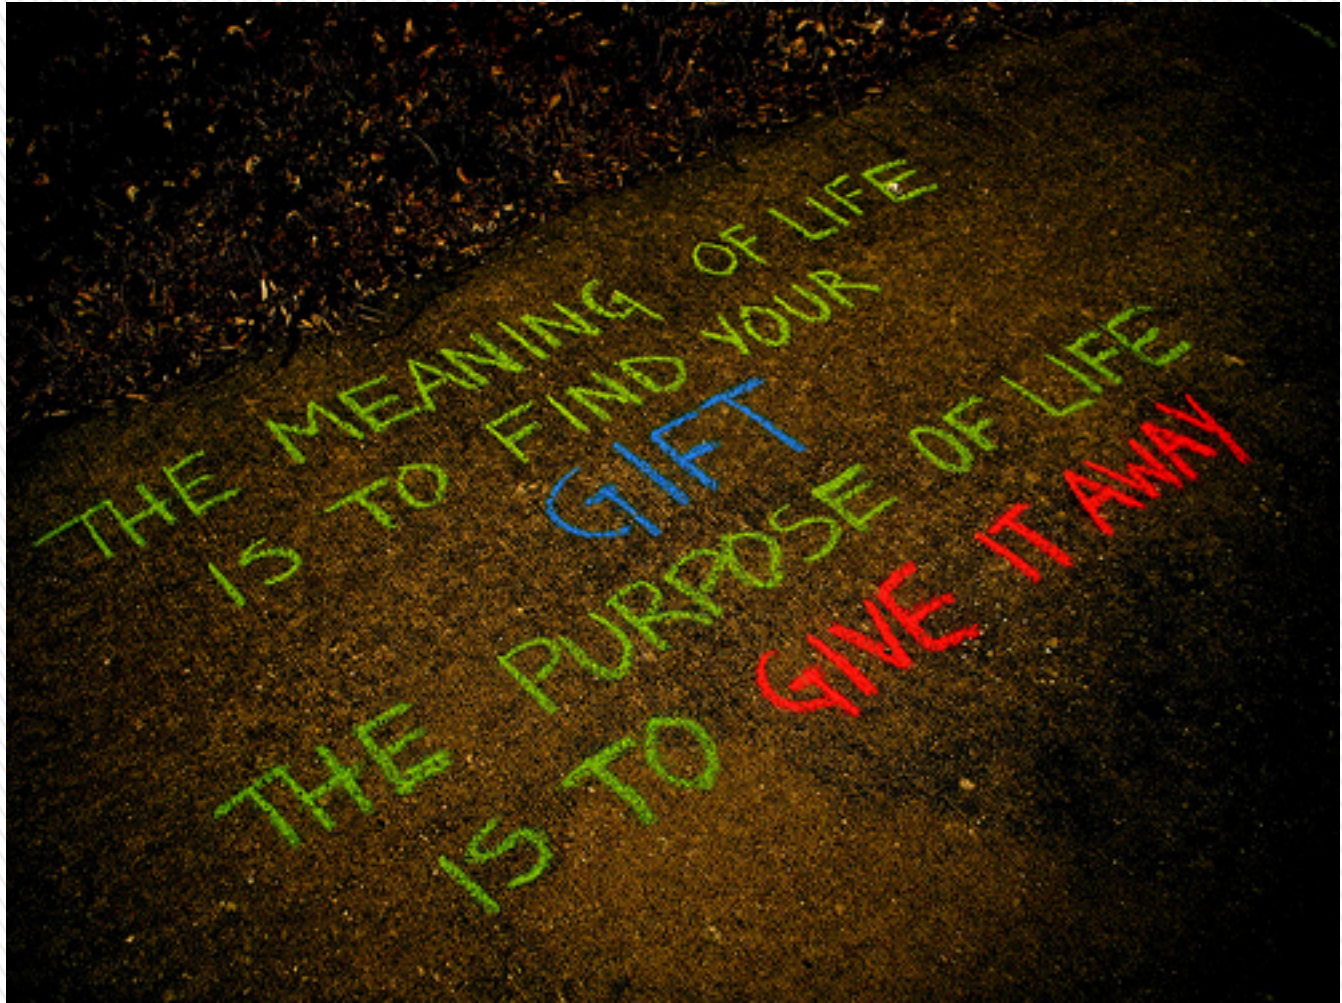 THE MEANING OF LIFE
IS TO FIND YOUR
GIFT
THE PURPOSE OF LIFE
IS TO GIVE IT AWAY